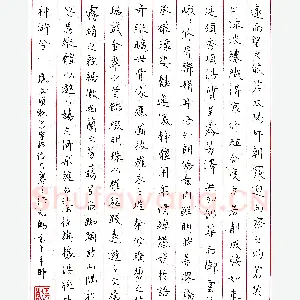 遠而望之皎若太陽升朝霞迫而察之灼若芙
蕖出淥波穠纖得衷修短合度肩若削成腰如約
素延頸秀項皓質呈露芳澤無加鉛華弗御雲髻
峨峨修眉聯娟丹唇外朗皓齒內鮮明眸善睞靨
輔承權瓌姿艷逸儀靜體閑柔情綽態媚於語言
奇服曠世骨像應圖披羅衣之璀粲兮珥瑤碧之華
琚戴金翠之首飾綴明珠以耀軀踐遠遊之文履曳
霧綃之輕裾微幽蘭之芳藹兮步踟躕於山隅於
是忽焉縱體以遨以嬉左倚采旄右蔭桂旗攘皓腕於
神滸兮
Shufawang.cn